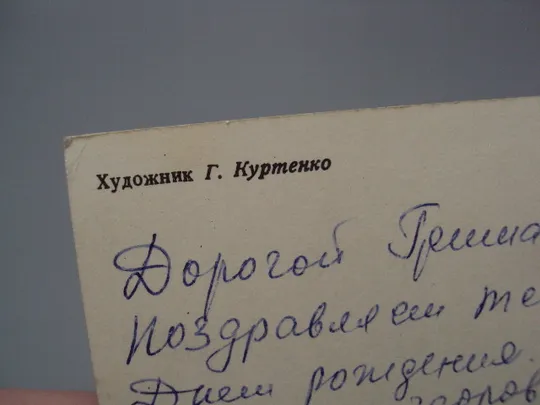 Художник Г. Куртенко
Дорогой Гриша
Поздравляем те
Днем рождения.
здоров